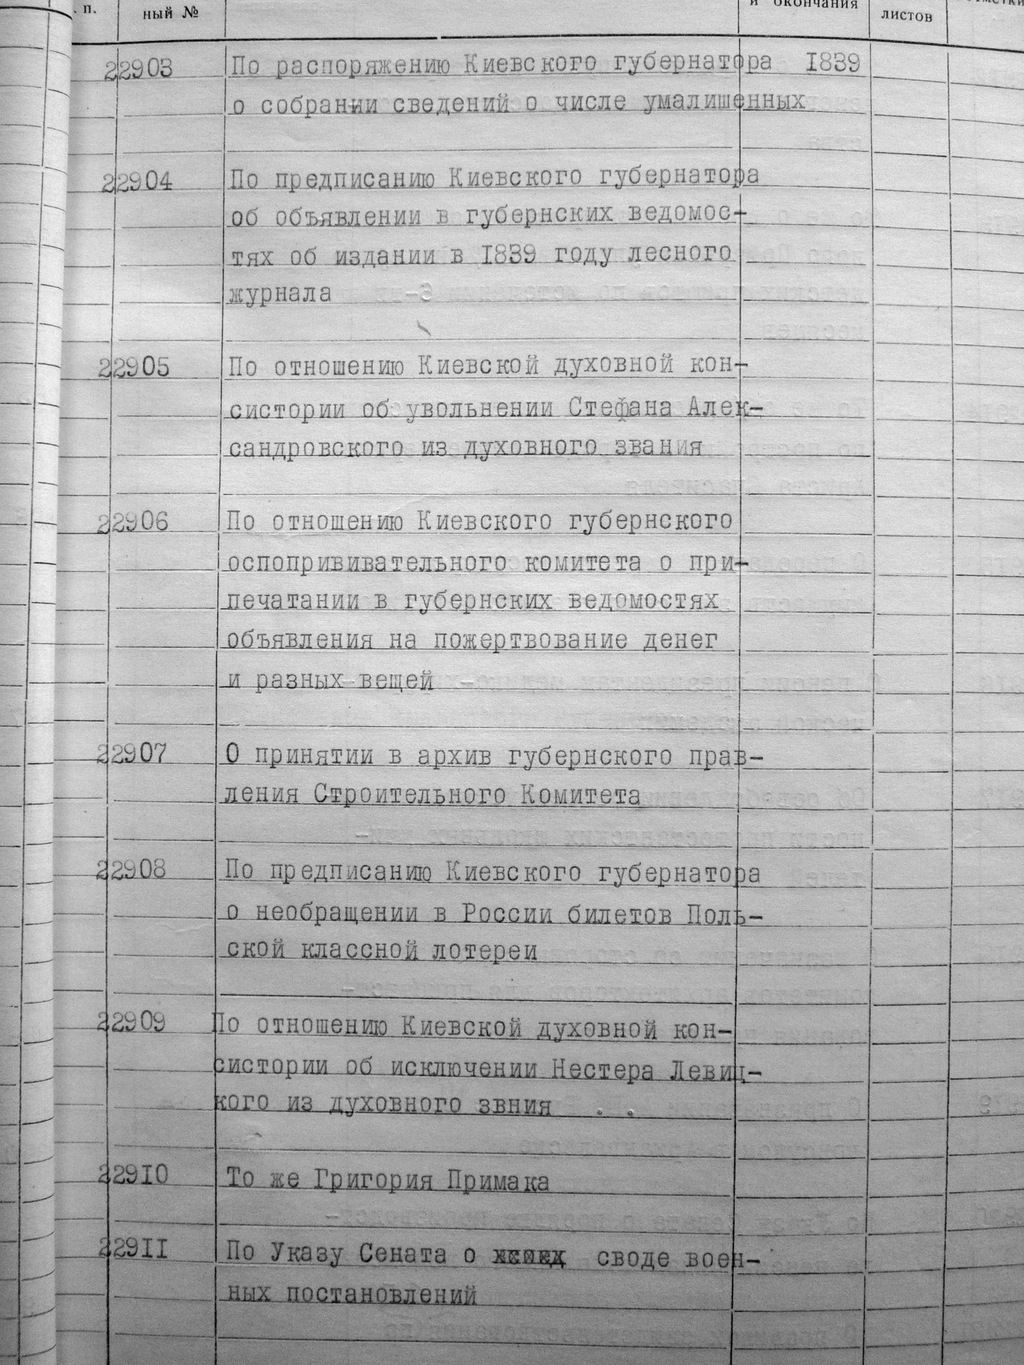 п.
ный №
и окончания
листов
22903 По распоряжению Киевского губернатора 1839
о собрании сведений о числе умалишенных
22904 По предписанию Киевского губернатора
об объявлении в губернских ведомос-
тях об издании в 1839 году лесного
журнала
22905 По отношению Киевской духовной кон-
систории об увольнении Стефана Алек-
сандровского из духовного звания
22906 По отношению Киевского губернского
оспопрививательного комитета о при-
печатании в губернских ведомостях
объявления на пожертвование денег
и разных вещей
22907 О принятии в архив губернского прав-
ления Строительного Комитета
22908 По предписанию Киевского губернатора
о необращении в России билетов Поль-
ской классной лотереи
22909 По отношению Киевской духовной кон-
систории об исключении Нестера Левиц-
кого из духовного звния
22910 То же Григория Примака
22911 По Указу Сената о своде воен-
ных постановлений